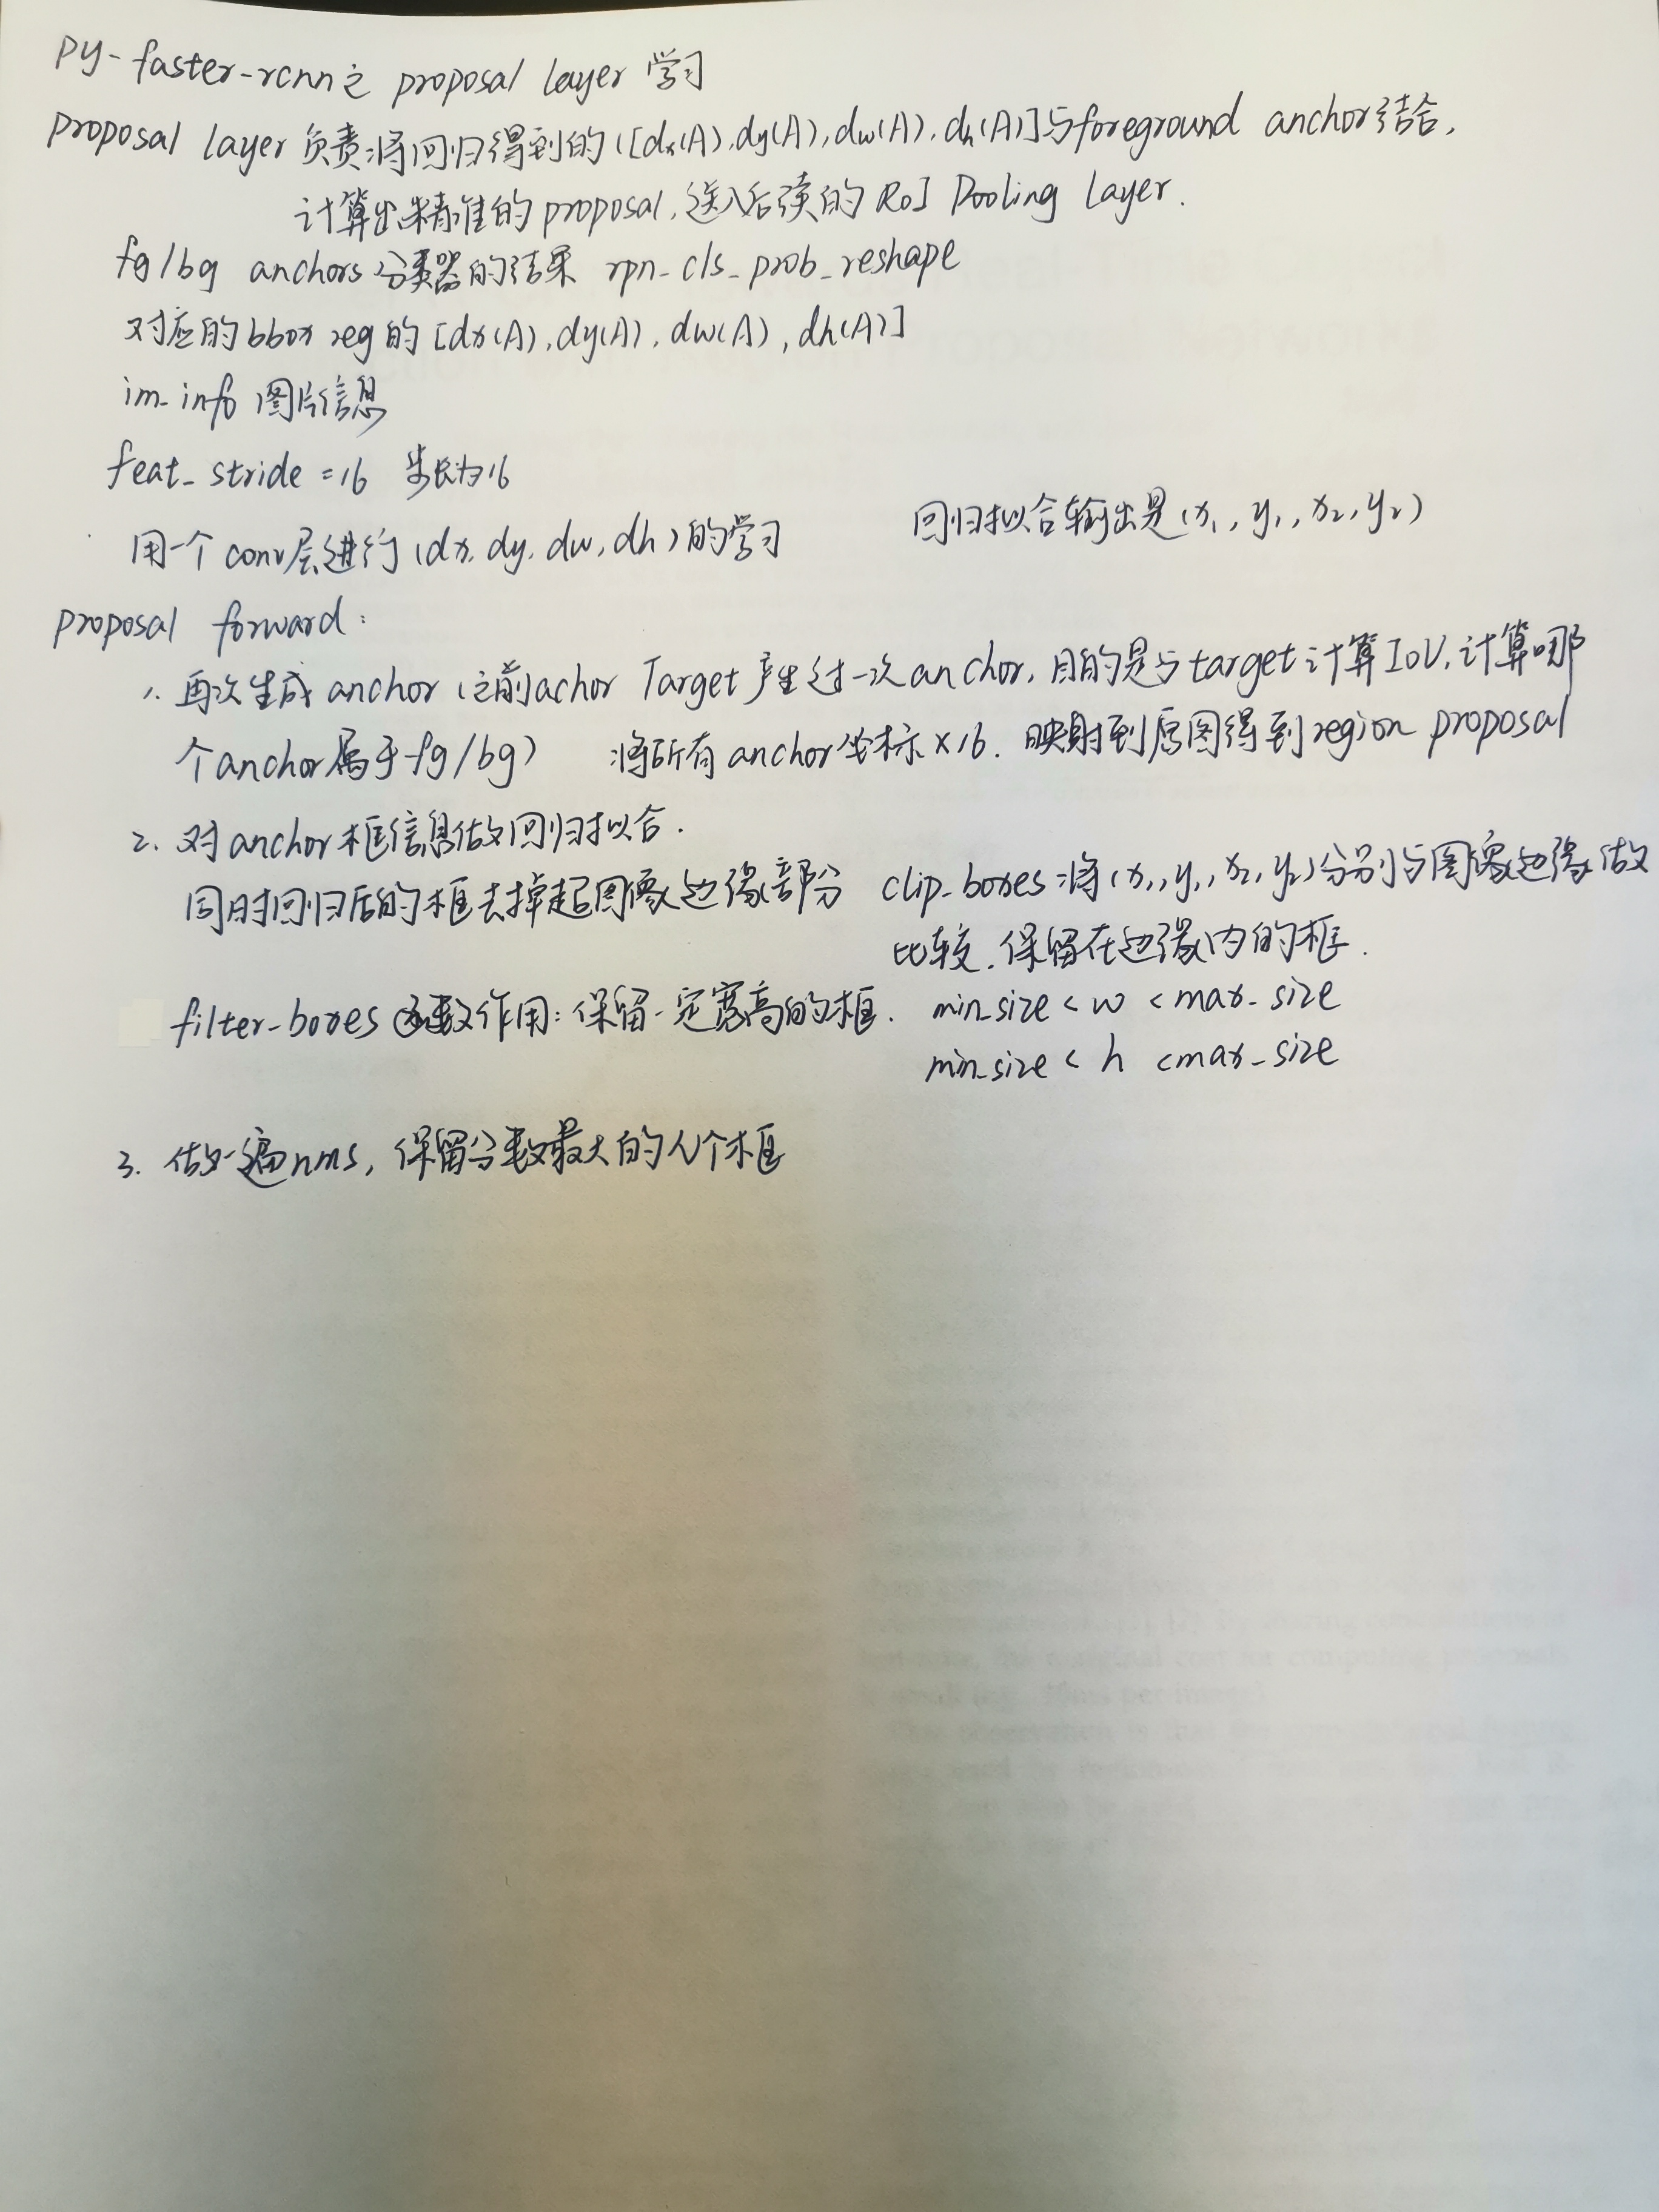 py-faster-rcnn之 proposal layer 学习
proposal layer 负责将回归得到的([dx(A),dy(A),dw(A),dh(A)]与foreground anchor结合,
计算出精准的proposal,送入后续的RoI Pooling Layer.
fg/bg anchors 分类器的结果 rpn_cls_prob_reshape
对应的bbox reg的[dx(A),dy(A),dw(A),dh(A)]
im_info 图片信息
feat_stride=16 步长为16
用一个conv层进行(dx,dy,dw,dh)的学习 回归拟合输出是(x1,y1,x2,y2)
proposal forward:
1. 再次生成anchor(之前achor Target产生过一次anchor,目的是与target计算IoU,计算哪
个anchor属于fg/bg) 将所有anchor坐标×16.映射到原图得到region proposal
2. 对anchor框信息做回归拟合.
同时回归后的框去掉超图像边缘部分 clip_boxes:将(x1,y1,x2,y2)分别与图像边缘做
比较.保留在边缘内的框.
filter_boxes函数作用:保留一定宽高的框. min_size<w<max_size
min_size<h<max_size
3. 做一遍nms,保留分数最大的N个框